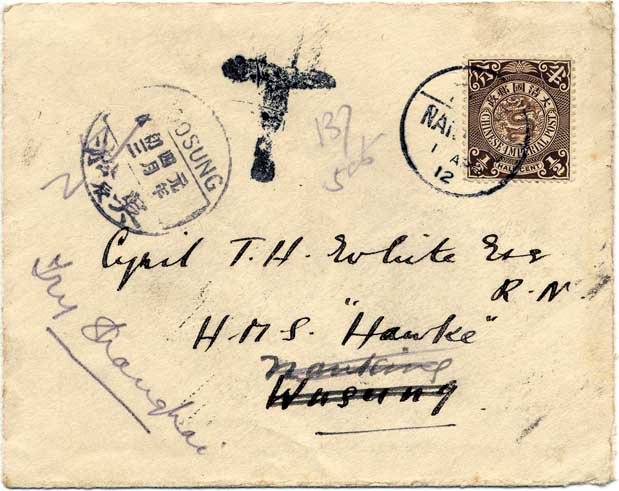 半分
大清國郵政
CHINESE IMPERIAL POST
1/2 1/2
HALF CENT
NAN
12
OSUNG
元年
四月
初三
T
137
Cyril T. H. White Esq
R.N.
H.M.S. "Hawke"
Nanking
Wusung
Try Shanghai